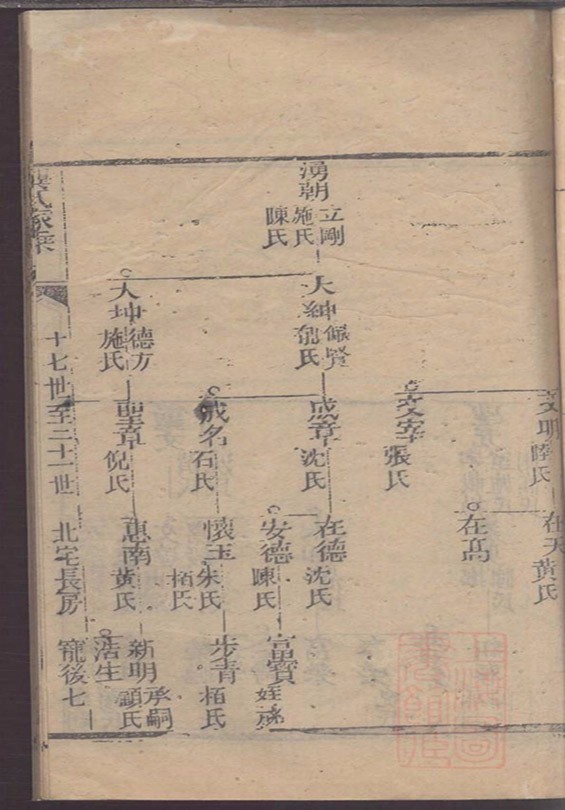 湧朝
立剛
施氏
陳氏
大紳
佩賢
倪氏
大坤
世德方
施氏
文明
陸氏
文宰
張氏
成章
沈氏
成名
石氏
聖章
倪氏
在天
黃氏
在高
在德
沈氏
安德
陳氏
懷玉
朱氏
栢氏
惠南
黃氏
富寶
步青
栢氏
新明
承嗣
顧氏
浩生
氏家乘
十七世至二十一世
北宅長房
寵後七